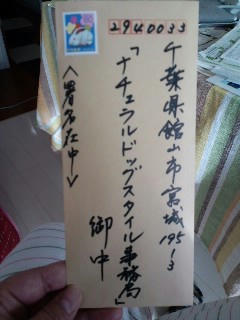 2940033
千葉県館山市宮城195-3
「ナチュラルドッグスタイル事務局」
御中
<署名在中>